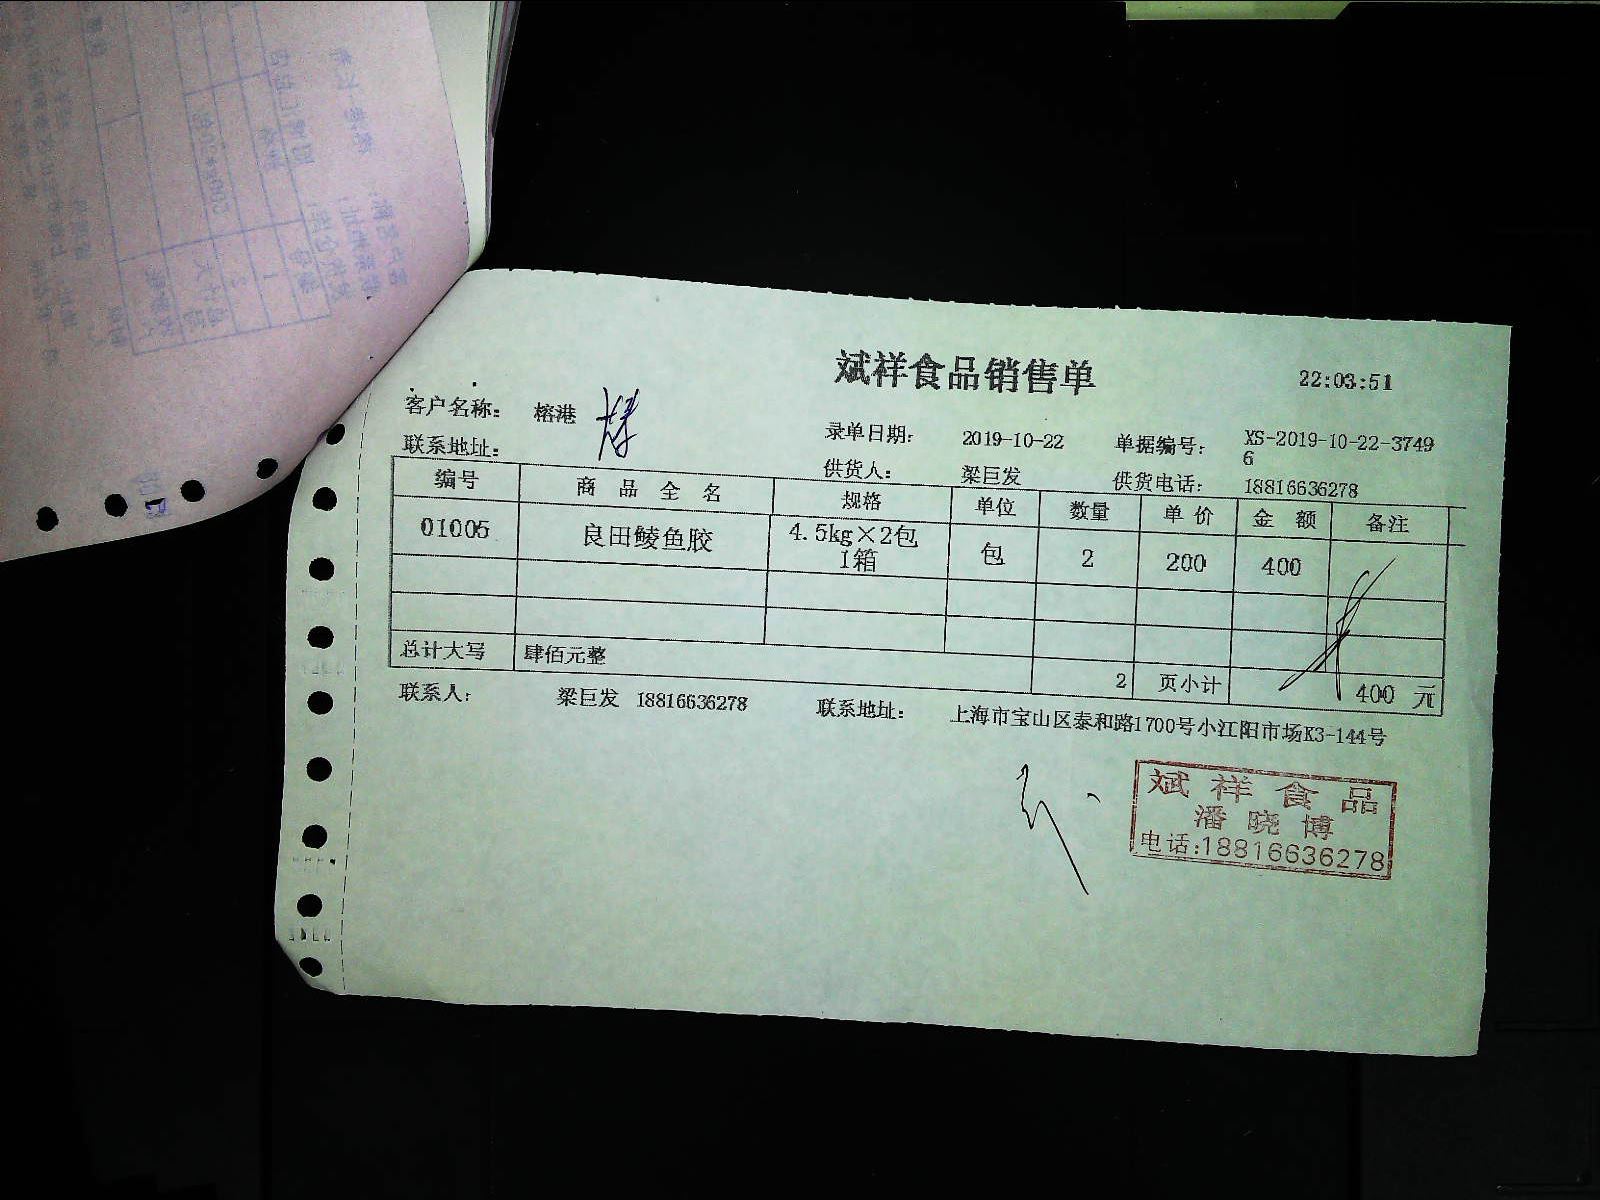 斌祥食品销售单
22:03:51
客户名称： 榕港
录单日期： 2019-10-22 单据编号： XS-2019-10-22-3749
6
联系地址：
供货人： 梁巨发 供货电话： 18816636278
编号 商品全名 规格 单位 数量 单价 金额 备注
01005 良田鲮鱼胶 4.5kg×2包 包 2 200 400
1箱
总计大写 肆佰元整 2 页小计 400 元
联系人： 梁巨发 18816636278 联系地址： 上海市宝山区泰和路1700号小江阳市场K3-144号
斌祥食品
潘晓博
电话:18816636278